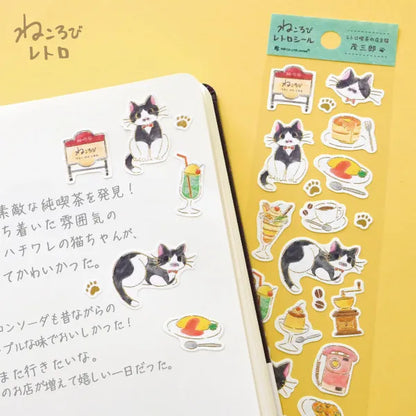 ねころび
レトロ
ねころび
レトロシール
レトロ喫茶の店主猫
茂三郎
ねころび
ねころび
素敵な純喫茶を発見！
ち着いた雰囲気の
ハチワレの猫ちゃんが、
てかわいかった。
ロンソーダも昔ながらの
プルな味でおいしかった！
また行きたいな。
のお店が増えて嬉しい一日だった。